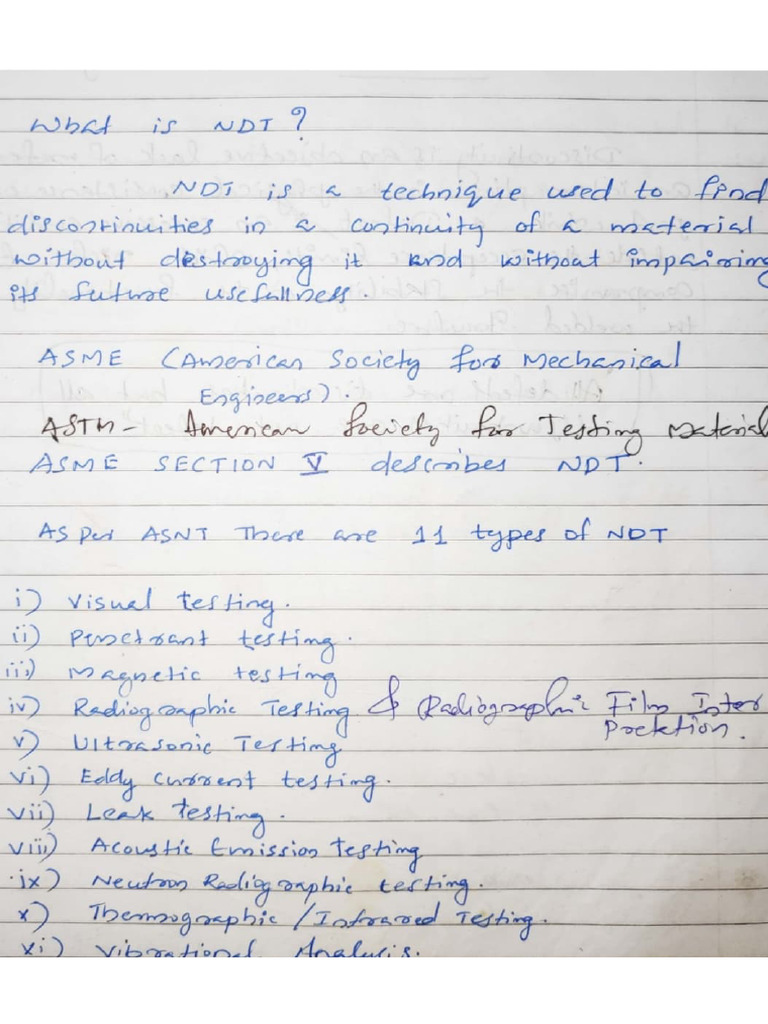 What is NDT?
NDT is a technique used to find
discontinuities in a continuity of a material
without destroying it and without impairing
its future usefullness.
ASME (American Society for Mechanical
Engineers).
ASTM - American Society for Testing Material
ASME SECTION V describes NDT.
AS Per ASNT There are 11 types of NDT
i) Visual testing.
ii) Penetrant testing.
iii) Magnetic testing
iv) Radiographic Testing & Radiographic Film Inter
Pretktion.
v) Ultrasonic Testing
vi) Eddy current testing.
vii) Leak testing.
viii) Acoustic Emission Testing
ix) Neutron Radiographic testing.
x) Thermographic / Infrared Testing.
xi) Vibrational Analysis.